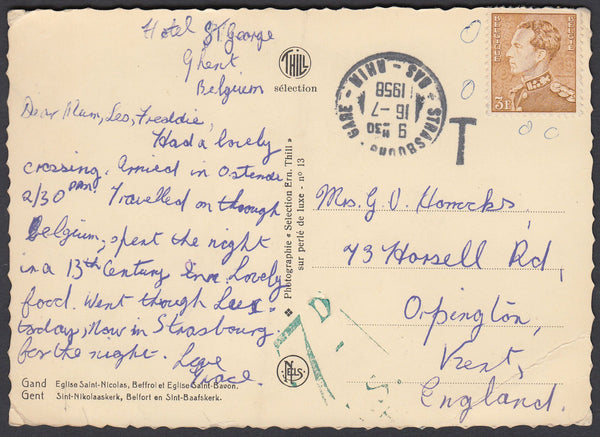 Hotel St George
Ghent
Belgium
Dear Mum, Les, Freddie,
Had a lovely
crossing. Arrived in Ostende
2/30 pm. Travelled on through
Belgium, spent the night
in a 13th Century Inn. Lovely
food. Went though
today, Now in Strasbourg
for the night. Love
Grace.
Gand Eglise Saint-Nicolas, Beffroi et Eglise Saint-Bavon.
Gent Sint-Nikolaaskerk, Belfort en Sint-Baafskerk.
THILL
sélection
❖ Photographie « Sélection Ern. Thill »
sur perlé de luxe - n° 13
NELS
STRASBOURG - GARE
BAS - RHIN
9 H30
16 -7
1958
T
BELGIQUE
BELGIE
3F
Mrs. G. V. Horrocks,
73 Horsell Rd,
Orpington,
Kent,
England.
7D